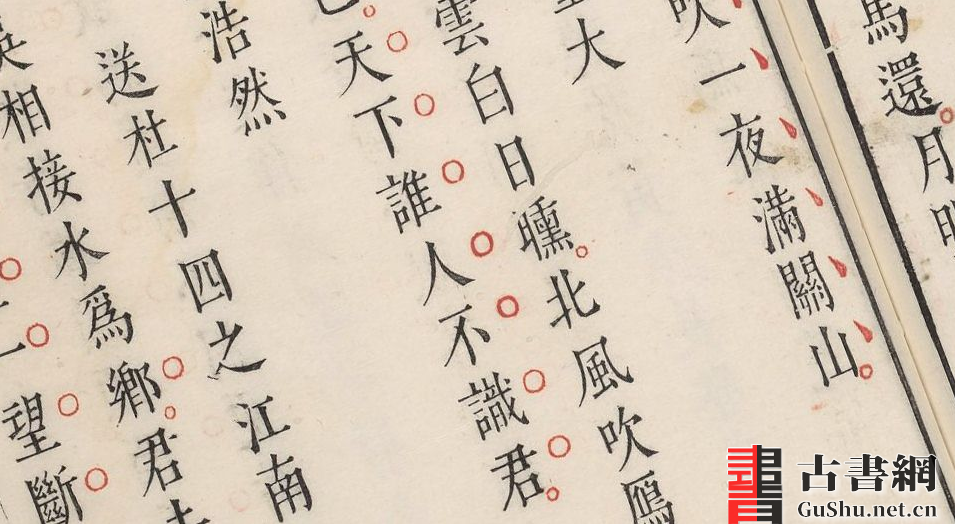 馬還月明
吹一夜滿關山
大
雲白日曛北風吹鴈
天下誰人不識君
浩然
送杜十四之江南
吳相接水爲鄉君去
望斷
古書網
GuShu.net.cn